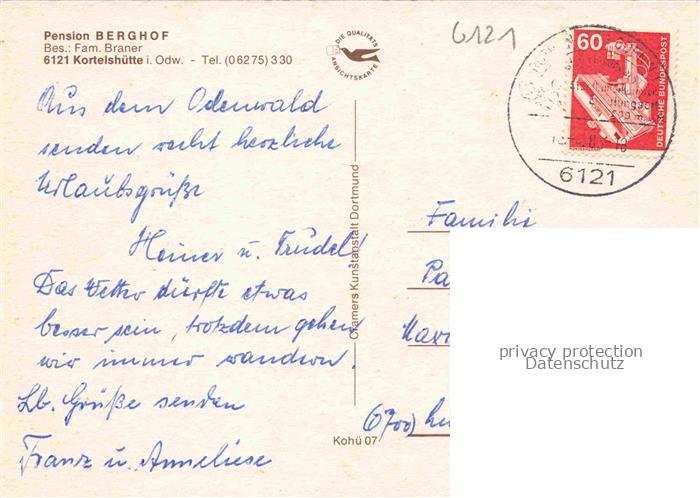 Pension BERGHOF
Bes.: Fam. Braner
6121 Kortelshütte i. Odw. - Tel. (06275) 330
DIE QUALITÄTS
ANSICHTSKARTE
6121
60
DEUTSCHE BUNDESPOST
6121
Aus dem Odenwald
senden recht herzliche
Urlaubsgrüße
Heiner u. Trudel!
Das Wetter dürfte etwas
besser sein, trotzdem gehen
wir immer wandern.
Lb. Grüße senden
Franz u. Anneliese
Cramers Kunstanstalt Dortmund
Kohü 07
Familie
Pa
6700
privacy protection
Datenschutz